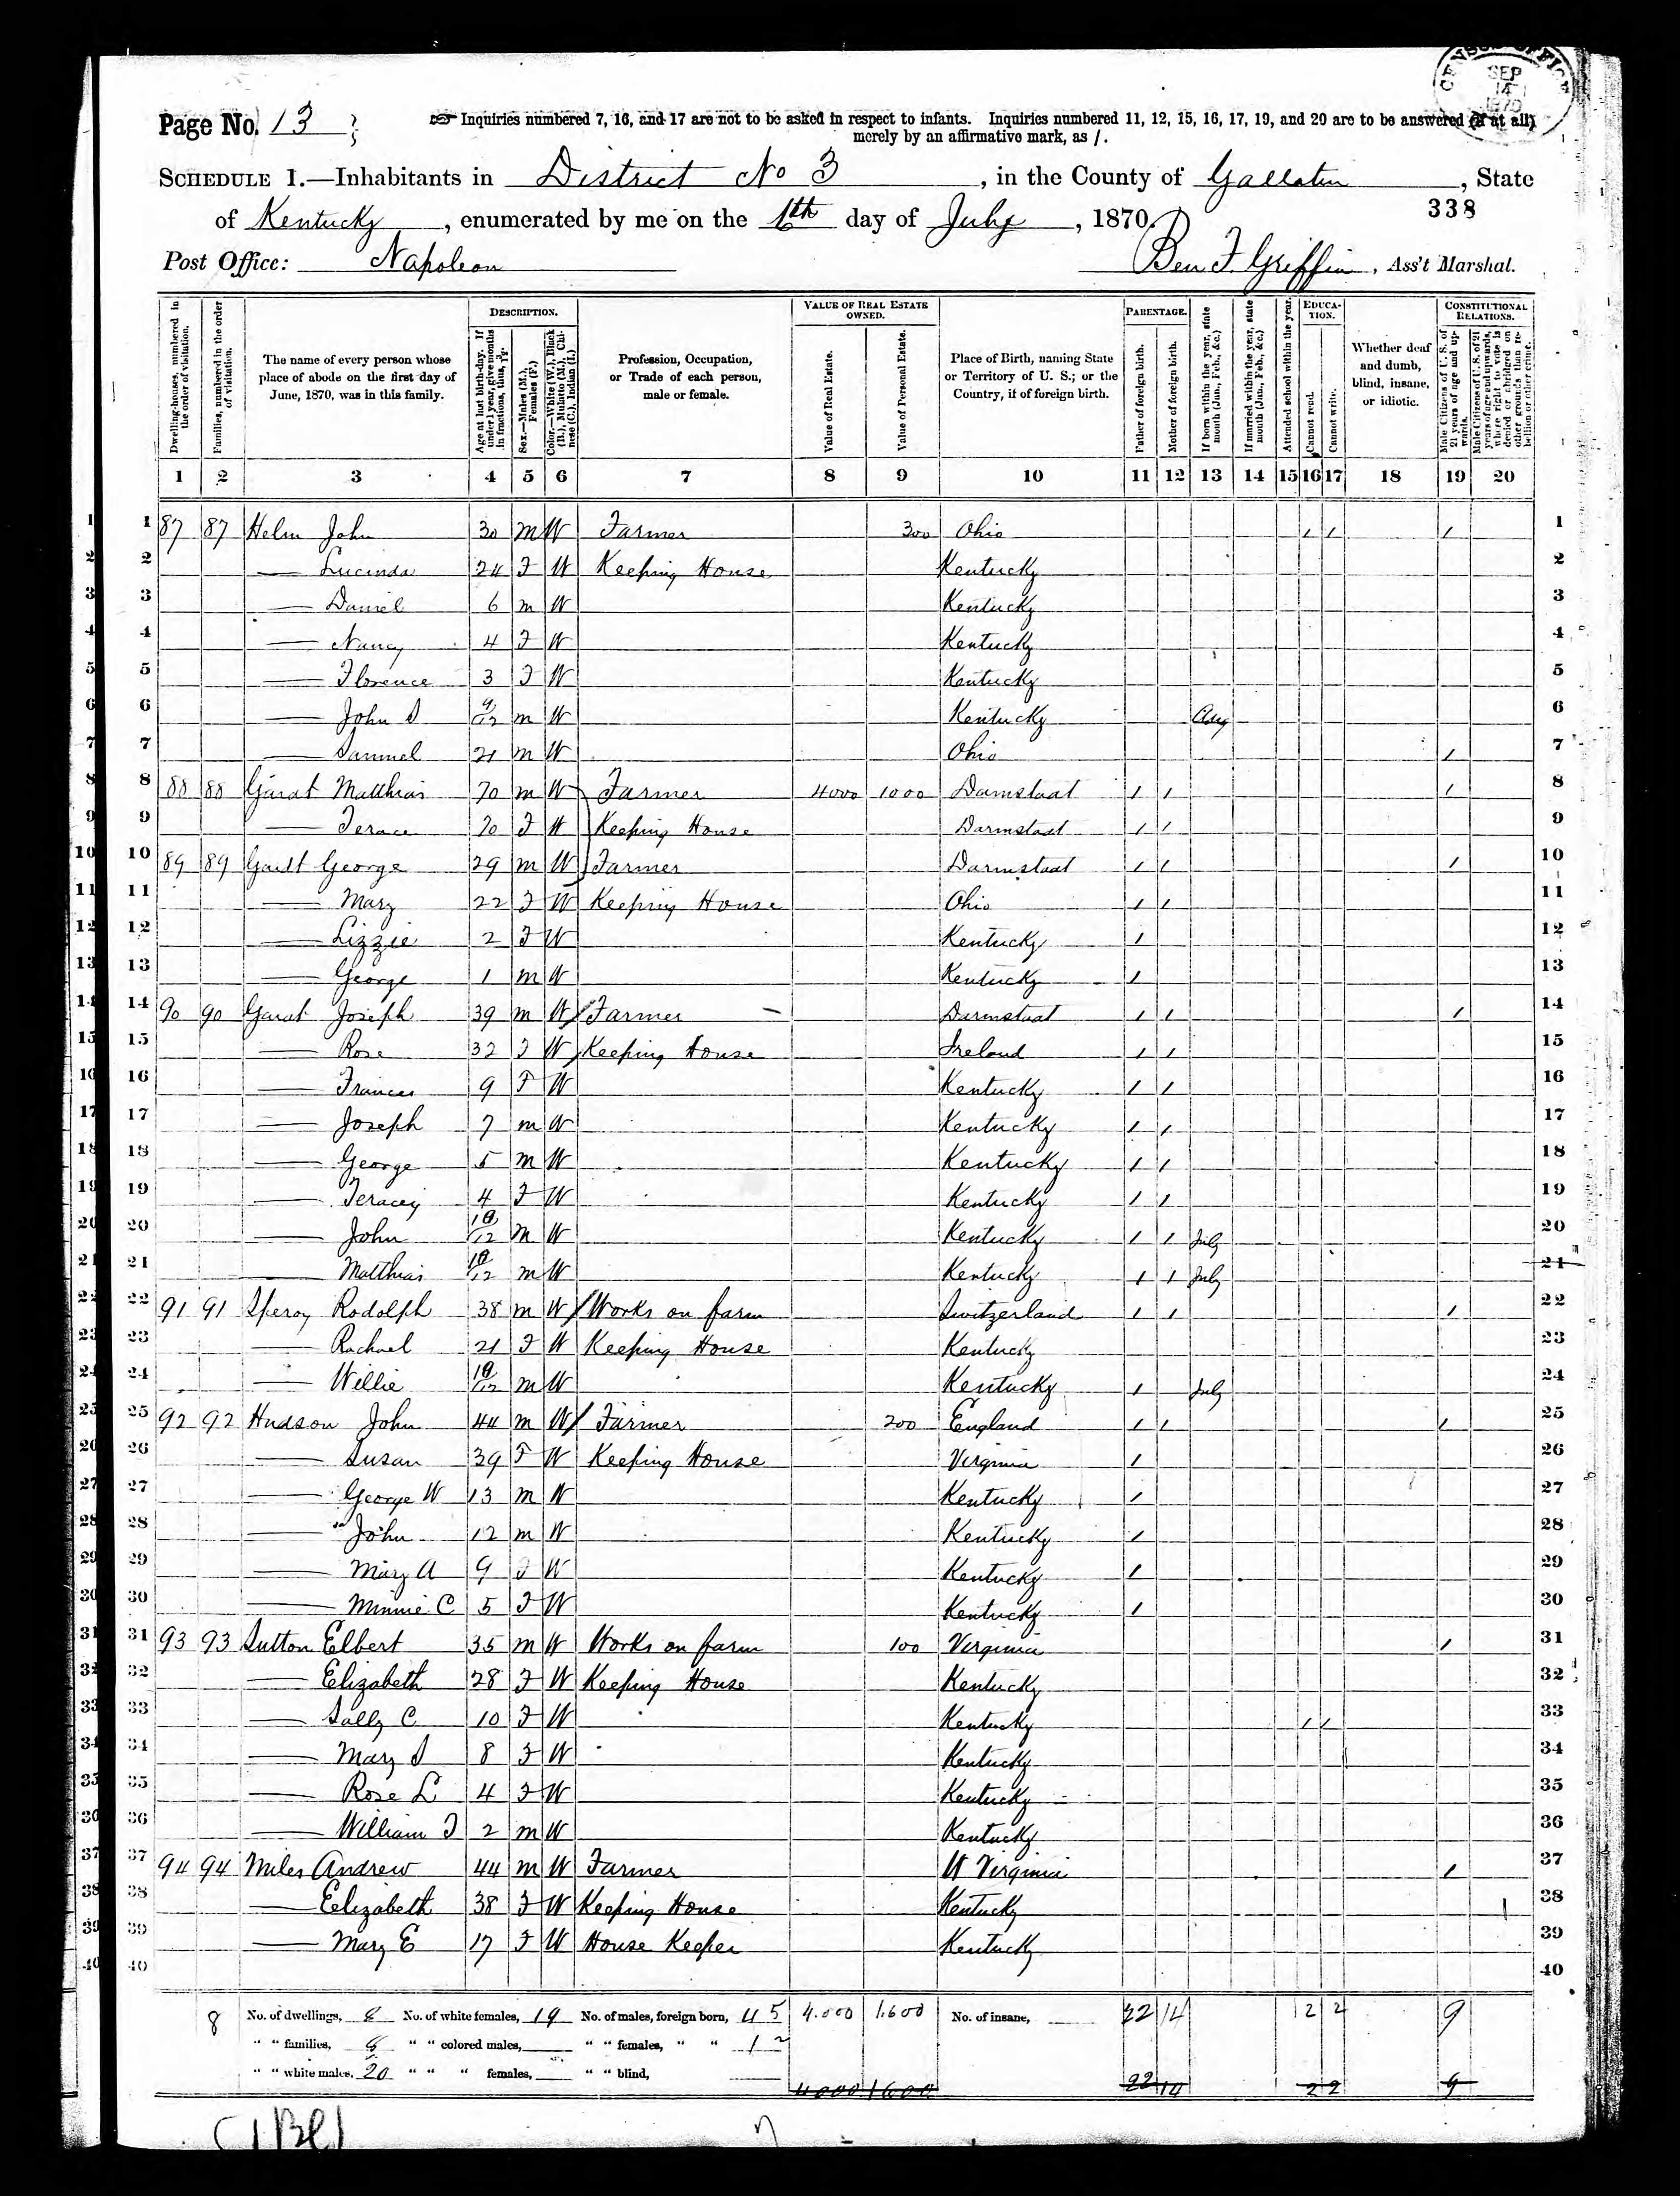 CENSUS OFFICE SEP 14 1870
Page No. 13
☞ Inquiries numbered 7, 16, and 17 are not to be asked in respect to infants. Inquiries numbered 11, 12, 15, 16, 17, 19, and 20 are to be answered (if at all)
merely by an affirmative mark, as /.
SCHEDULE 1.—Inhabitants in District No 3, in the County of Gallatin, State
338
of Kentucky, enumerated by me on the 6th day of July, 1870.
Post Office: Napoleon Ben F. Griffin, Ass't Marshal.
Dwelling-houses, numbered in the order of visitation.
Families, numbered in the order of visitation.
The name of every person whose place of abode on the first day of June, 1870, was in this family.
DESCRIPTION.
Age at last birth-day. If under 1 year, give months in fractions, thus, 3/12.
Sex.—Males (M.), Females (F.)
Color.—White (W.), Black (B.), Mulatto (M.), Chinese (C.), Indian (I.)
Profession, Occupation, or Trade of each person, male or female.
VALUE OF REAL ESTATE OWNED.
Value of Real Estate.
Value of Personal Estate.
Place of Birth, naming State or Territory of U. S.; or the Country, if of foreign birth.
PARENTAGE.
Father of foreign birth.
Mother of foreign birth.
If born within the year, state month (Jan., Feb., &c.)
If married within the year, state month (Jan., Feb., &c.)
Attended school within the year.
EDUCATION.
Cannot read.
Cannot write.
Whether deaf and dumb, blind, insane, or idiotic.
CONSTITUTIONAL RELATIONS.
Male Citizens of U. S. of 21 years of age and upwards.
Male Citizens of U. S. of 21 years of age and upwards, whose right to vote is denied or abridged on other grounds than rebellion or other crime.
1 2 3 4 5 6 7 8 9 10 11 12 13 14 15 16 17 18 19 20
1 87 87 Helm John 30 M W Farmer 300 Ohio / / / 1
2 — Lucinda 24 F W Keeping House Kentucky 2
3 — Daniel 6 M W Kentucky 3
4 — Nancy 4 F W Kentucky 4
5 — Florence 3 F W Kentucky 5
6 — John S 9/12 M W Kentucky Aug 6
7 — Samuel 21 M W Ohio / 7
8 88 88 Garat Matthias 70 M W Farmer 4000 1000 Darmstaat / / / 8
9 — Terace 70 F W Keeping House Darmstaat / / 9
10 89 89 George 29 M W Farmer Darmstaat / / / 10
11 — Mary 22 F W Keeping House Ohio / / 11
12 — Lizzie 2 F W Kentucky / 12
13 — George 1 M W Kentucky / 13
14 90 90 Garat Joseph 39 M W Farmer Darmstaat / / / 14
15 — Rose 32 F W Keeping House Ireland / / 15
16 — Frances 9 F W Kentucky / / 16
17 — Joseph 7 M W Kentucky / / 17
18 — George 5 M W Kentucky / / 18
19 — Teracey 4 F W Kentucky / / 19
20 — John 10/12 M W Kentucky / / July 20
21 — Matthias 10/12 M W Kentucky / / July 21
22 91 91 Speroy Rodolph 38 M W Works on farm Switzerland / / / 22
23 — Rachael 21 F W Keeping House Kentucky 23
24 — Willie 10/12 M W Kentucky / July 24
25 92 92 Hudson John 44 M W Farmer 200 England / / / 25
26 — Susan 39 F W Keeping House Virginia / 26
27 — George W 13 M W Kentucky / 27
28 — John 12 M W Kentucky / 28
29 — Mary A 9 F W Kentucky / 29
30 — Minnie C 5 F W Kentucky / 30
31 93 93 Sutton Elbert 35 M W Works on farm 100 Virginia / 31
32 — Elizabeth 28 F W Keeping House Kentucky 32
33 — Sally C 10 F W Kentucky / / 33
34 — Mary S 8 F W Kentucky 34
35 — Rose L 4 F W Kentucky 35
36 — William T 2 M W Kentucky 36
37 94 94 Miles Andrew 44 M W Farmer W Virginia / 37
38 — Elizabeth 38 F W Keeping House Kentucky 38
39 — Mary E 17 F W House Keeper Kentucky 39
40 40
8 No. of dwellings, 8 No. of white females, 19 No. of males, foreign born, 4 5 4.000 1.600 No. of insane, 22 14 2 2 9
" " families, 8 " " colored males, " " females, " " 1 2
" " white males, 20 " " " females, " " blind, 4000 1600 22 14 2 2 9